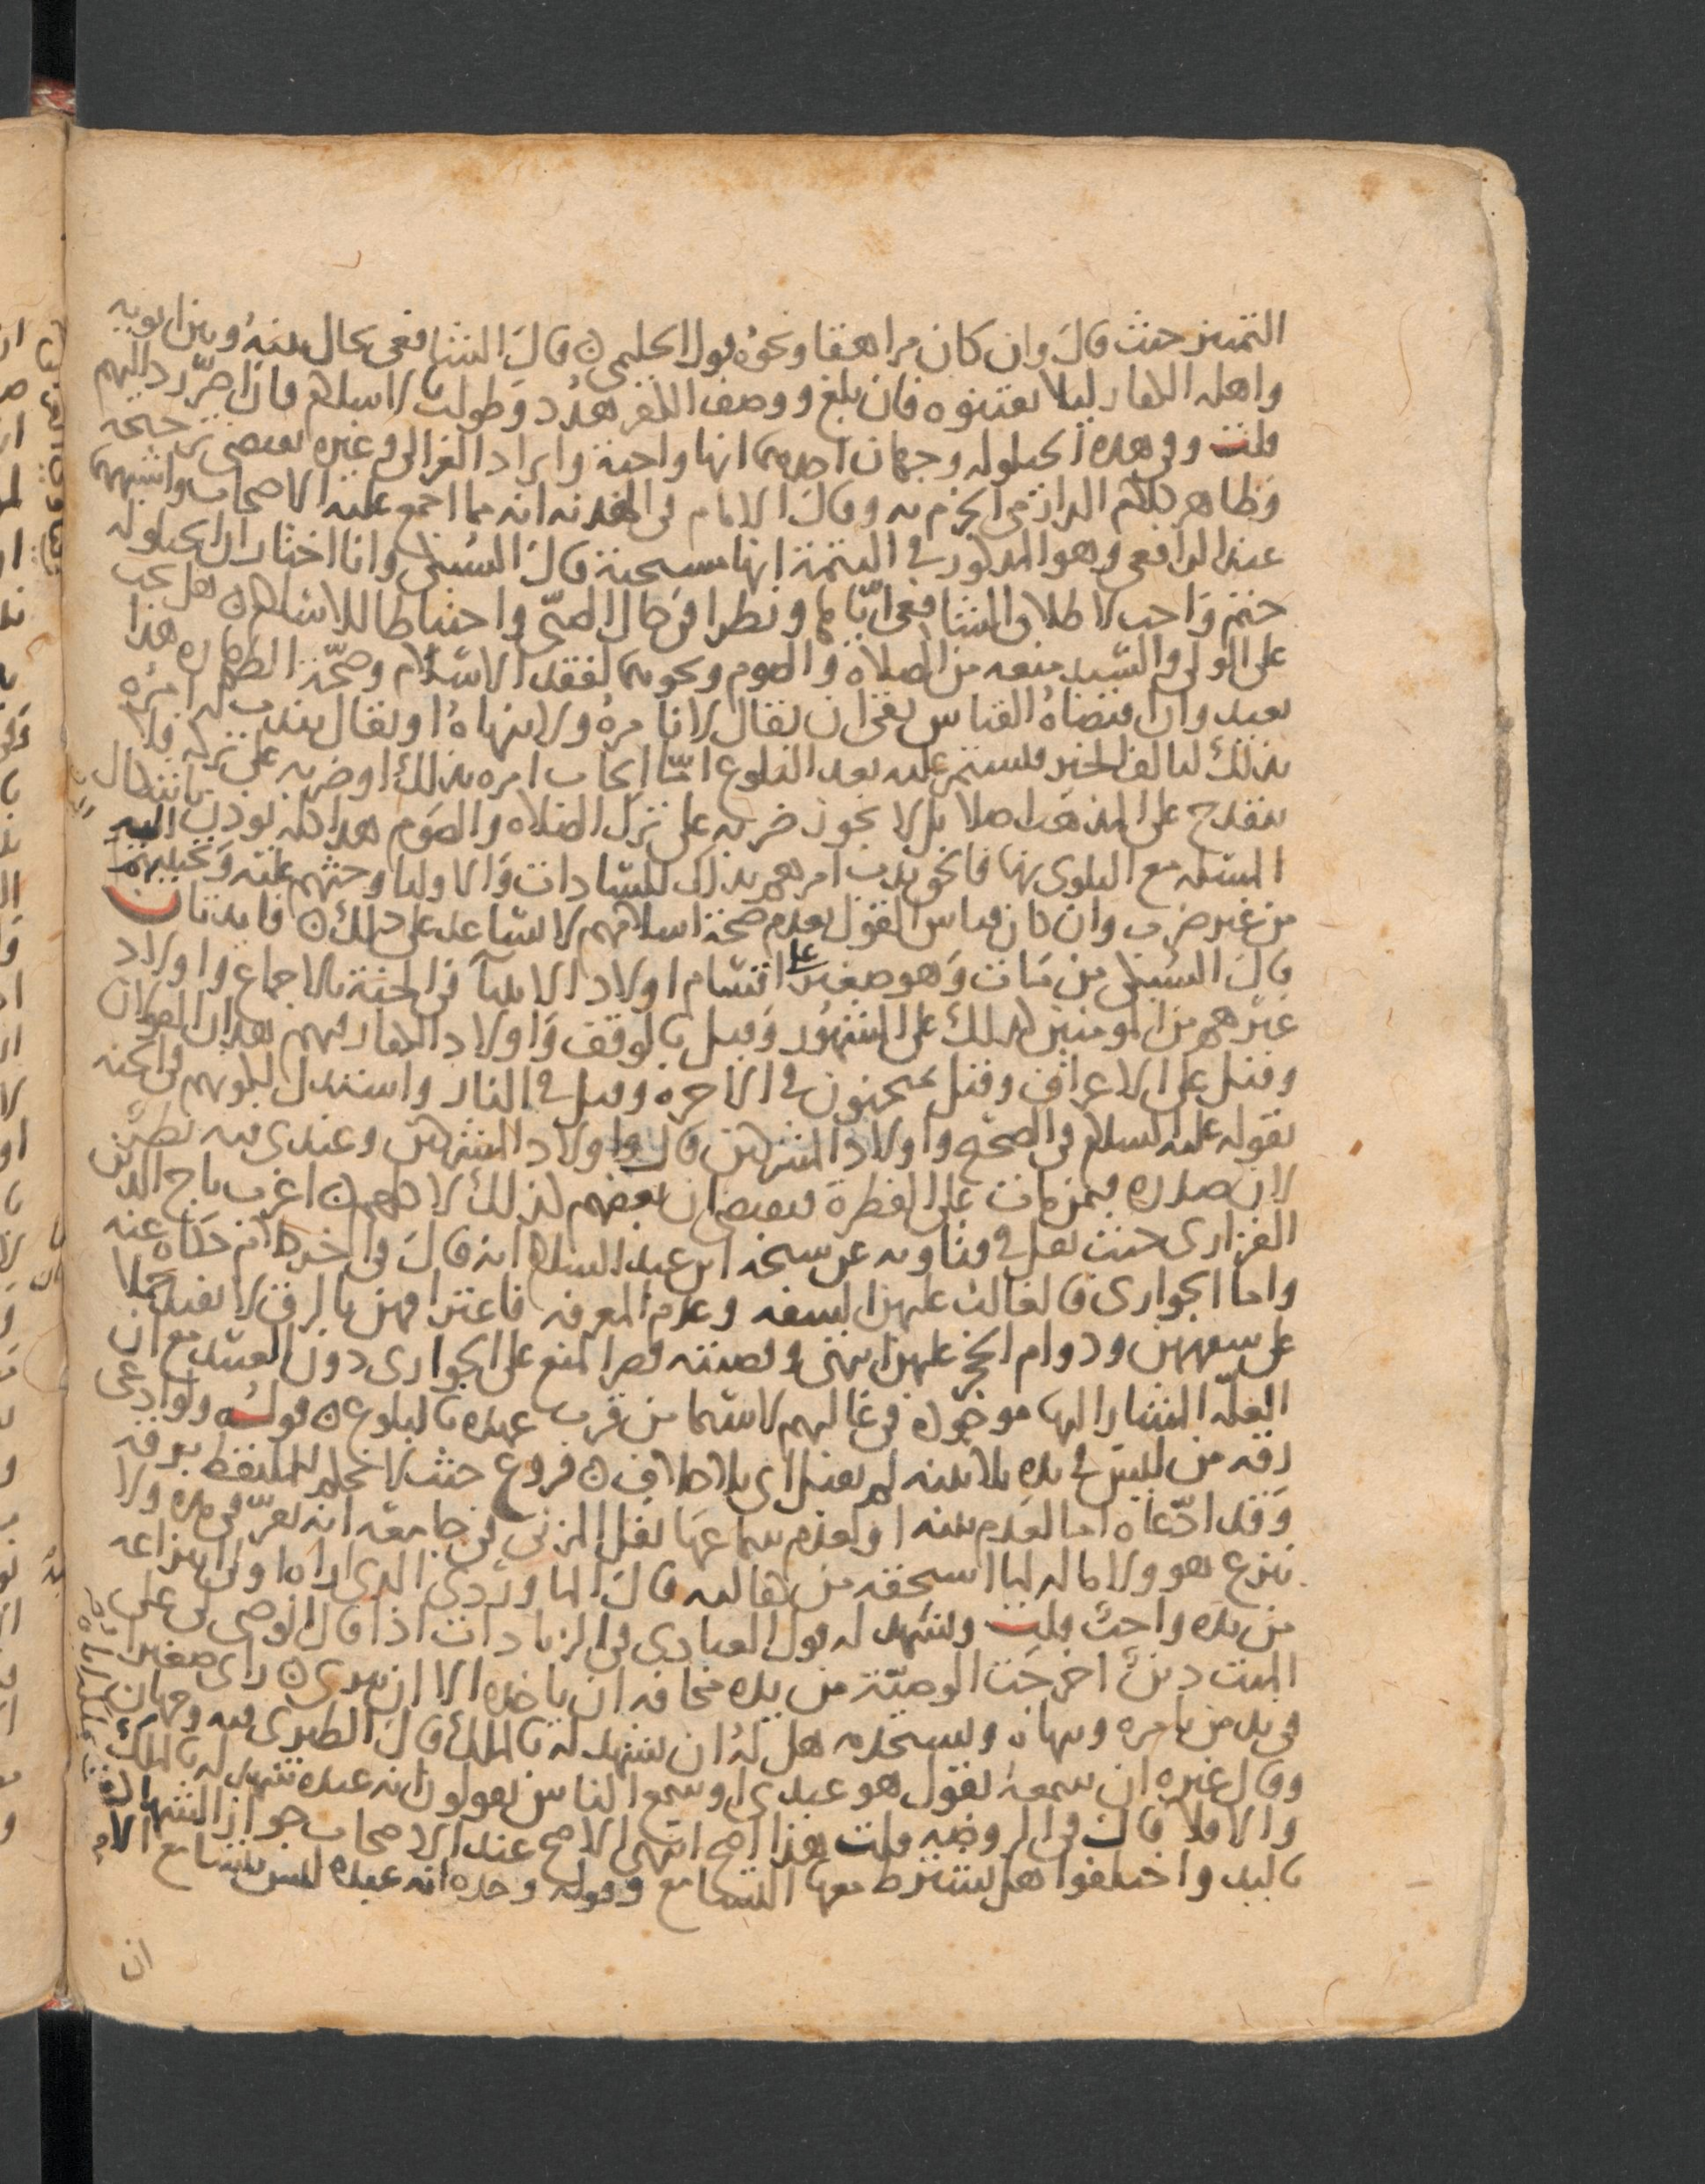 التمييز حيث قال وان كان مراهقا ونحوه قول الحليمي قال الشافعي يحال بينه وبين ابويه
واهله الكفار ليلا يفتنوه فان بلغ ووصف الكفر هدد وطولب بالاسلام فان اصر رد اليهم
قلت وفي هذه الحيلولة وجهان احدهما انها واجبة وايراد الغزالي وغيره يقتضي ترجيحه
وظاهر كلام الدارمي الجزم به وقال الامام في الهدنة انه مما اجمع عليه الاصحاب واشبههما
عند الرافعي وهو المذكور في التتمة انها مستحبة قال السبكي وانا اختار ان الحيلولة
حتم واجب لاطلاق الشافعي اياها ونظرا في حال الصبي واحتياطا للاسلام هل يجب
على الولي والسيد منعه من الصلاة والصوم ونحوهما لفقد الاسلام وصحة الطهارة هذا
بعيد وان اقتضاه القياس بقي ان يقال لا نامره ولا ينهاه او يقال يندب له امره
بذلك ليالف الخير فيستمر عليه بعد البلوغ اما ايجاب امره بذلك او ضربه على تركه فلا
ينقدح على المذهب اصلا بل لا يجوز ضربه على ترك الصلاة والصوم هذا كله تودب
المسئلة مع البلوى بها فالحق ندب امرهم بذلك للسادات والاوليا وحثهم عليه
من غير ضرب وان كان قياس القول بعدم صحة اسلامهم لا يساعد على ذلك فايدتان
قال السبكي من مات وهو صغير على اقسام اولاد الانبيا في الجنة بالاجماع واولاد
غيرهم من المومنين كذلك على المشهور وقيل بالوقف واولاد الكفار فيهم هذان القولان
وقيل على الاعراف وقيل يمتحنون في الاخرة وقيل في النار واستدل لكونهم في الجنة
بقوله عليه السلام في الصحيح واولاد المشركين قال واولاد المشركين وعندي فيه نظر
لان صدره فيمن مات على الفطرة فيقتضي ان بعضهم كذلك لا كلهم اغرب تاج الدين
الفزاري حيث نقل في فتاويه عن شيخه ابن عبد السلام انه قال في اخر كلام حكاه عنه
واما الجواري فالغالب عليهن السفه وعدم المعرفة فاعترافهن بالرق لا يقبل حملا
على سفههن ودوام الحجر عليهن انتهى وقضيته قصر المنع على الجواري دون العبيد مع ان
العلة المشار اليها موجودة في غالبهم لا سيما من قرب عهده بالبلوغ قوله ولو ادعى
رقه من ليس في يده بلا بينة لم يقبل اي بلا خلاف فروع حيث لا نحكم للملتقط برقه
وقد ادعاه اما لعدم بينة او لعدم سماعها نقل المزني في جامعه انه يقر في يده ولا
ينزع هو ولا ماله لما استحقه من كفالته قال الماوردي الذي اراه اولى انتزاعه
من يده واجب قلت ويشهد له قول العبادي في الزيادات اذا قال الوصي لي على
الميت دين اخرجت الوصية من يده مخافة ان ياخذه الا ان يبري راى صغيرا
في يد من يامره وينهاه ويستخدمه هل له ان يشهد له بالملك قال الطبري فيه وجهان
وقال غيره ان سمعه يقول هو عبدي او سمع الناس يقولون انه عبده شهد له بالملك
والا فلا قال في الروضة قلت هذا اصح انتهى الاصح عند الاصحاب جواز الشهادة
باليد واختلفوا هل يشترط معها التسامع وقوله وحده انه عبده ليس بتسامع
ان